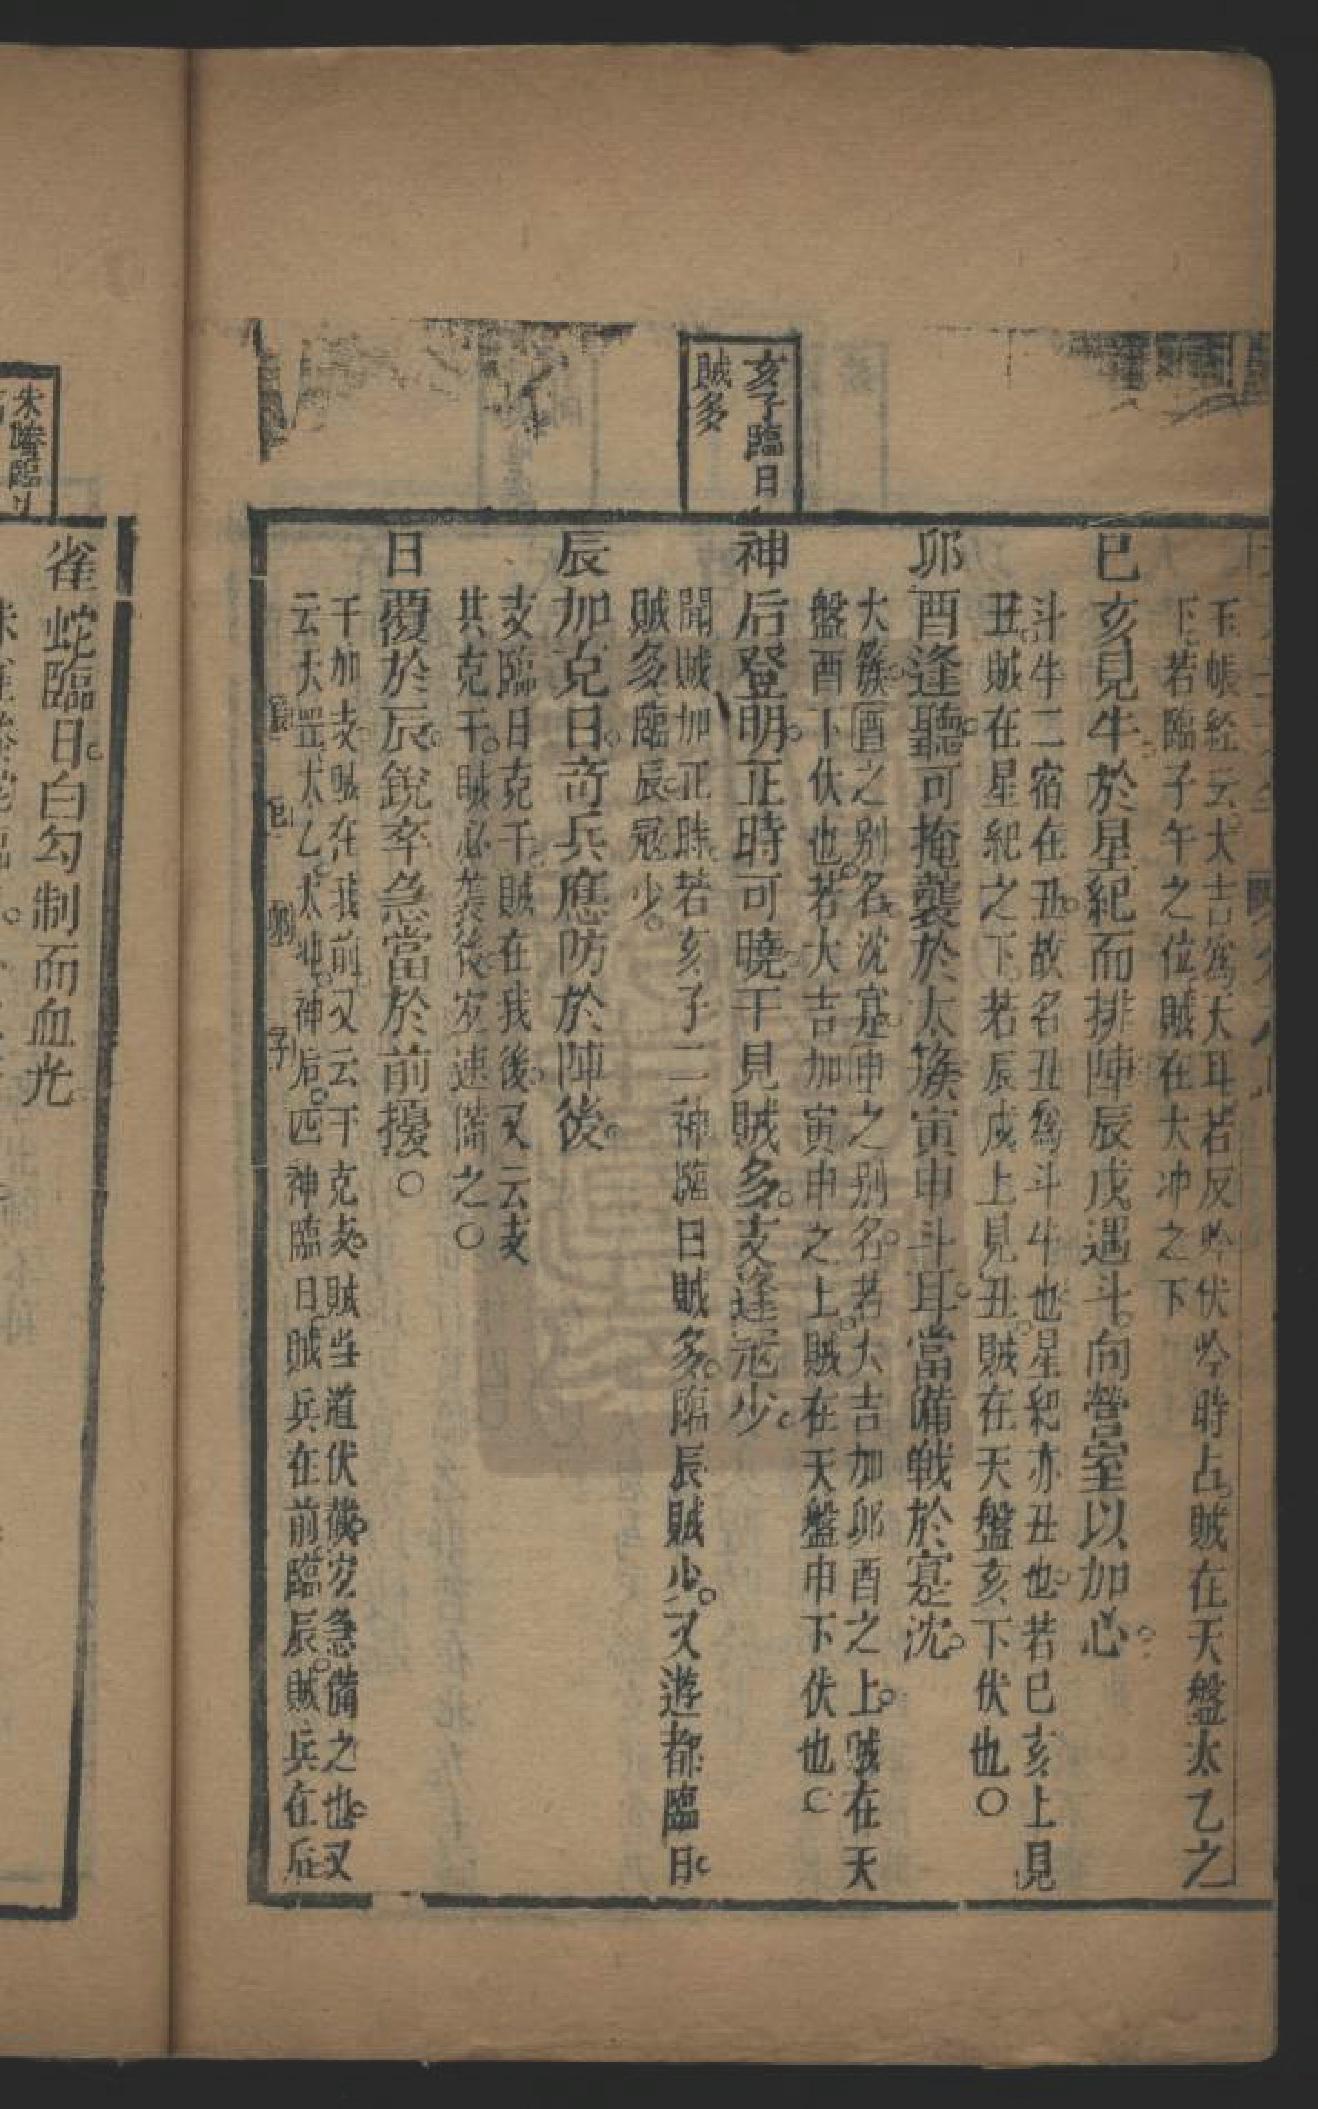 亥子臨日
賊多
玉帳经云大吉為天耳若反吟伏吟時占賊在天盤太乙之
下若臨子午之位賊在大冲之下
巳亥見牛於星紀而排陣辰戌遇斗向營室以加心
斗牛二宿在丑故名丑為斗牛也星紀亦丑也若巳亥上見
丑賊在星紀之下若辰戌上見丑賊在天盤亥下伏也〇
夘酉逢聽可掩襲於太簇寅申斗耳當備戦於寔沈
大簇酉之别名沈寔申之别名若大吉加夘酉之上賊在天
盤酉下伏也若大吉加寅申之上賊在天盤申下伏也〇
神后登明正時可曉干見賊多支逢冦少
聞賊加正時若亥子二神臨日賊多臨辰賊少又遊都臨日
賊多臨辰冦少
辰加克日奇兵應防於陣後
支臨日克干賊在我後又云支
共克干賊必襲後宜速備之〇
日覆於辰銳卒急當於前擾〇
干加支賊在我前又云干克支賊当道伏藏宜急備之也又
云天罡太乙太冲神后四神臨日賊兵在前臨辰賊兵在后
辰 巳 夘 子
雀蛇臨日白勾制而血光